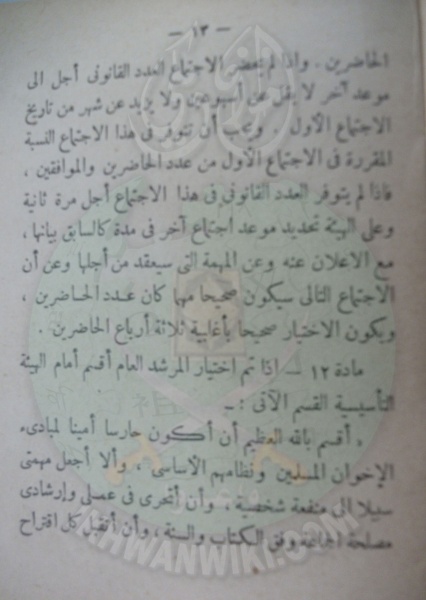 — ١٣ —
الحاضرين . واذا لم يحضر الاجتماع العدد القانونى أجل الى
موعد آخر لا يقل عن أسبوعين ولا يزيد عن شهر من تاريخ
الاجتماع الأول . ويجب أن تتوفر فى هذا الاجتماع النسبة
المقررة فى الاجتماع الأول من عدد الحاضرين والموافقين ،
فاذا لم يتوفر العدد القانونى فى هذا الاجتماع أجل مرة ثانية
وعلى الهيئة تحديد موعد اجتماع آخر فى مدة كالسابق بيانها ،
مع الاعلان عنه وعن المهمة التى سيعقد من أجلها وعن أن
الاجتماع التالى سيكون صحيحا مهما كان عدد الحاضرين ،
ويكون الاختيار صحيحا بأغلبية ثلاثة أرباع الحاضرين .
مادة ١٢ — اذا تم اختيار المرشد العام أقسم أمام الهيئة
التأسيسية القسم الآتى : —
، أقسم بالله العظيم أن أكون حارسا أمينا لمبادىء
الإخوان المسلمين ونظامهم الأساسى ، وألا أجعل مهمتى
سبيلا الى منفعة شخصية ، وأن أتحرى فى عملى وإرشادى
مصلحة الجماعة وفق الكتاب والسنة ، وأن أتقبل كل اقتراح
IKHWANWIKI.COM